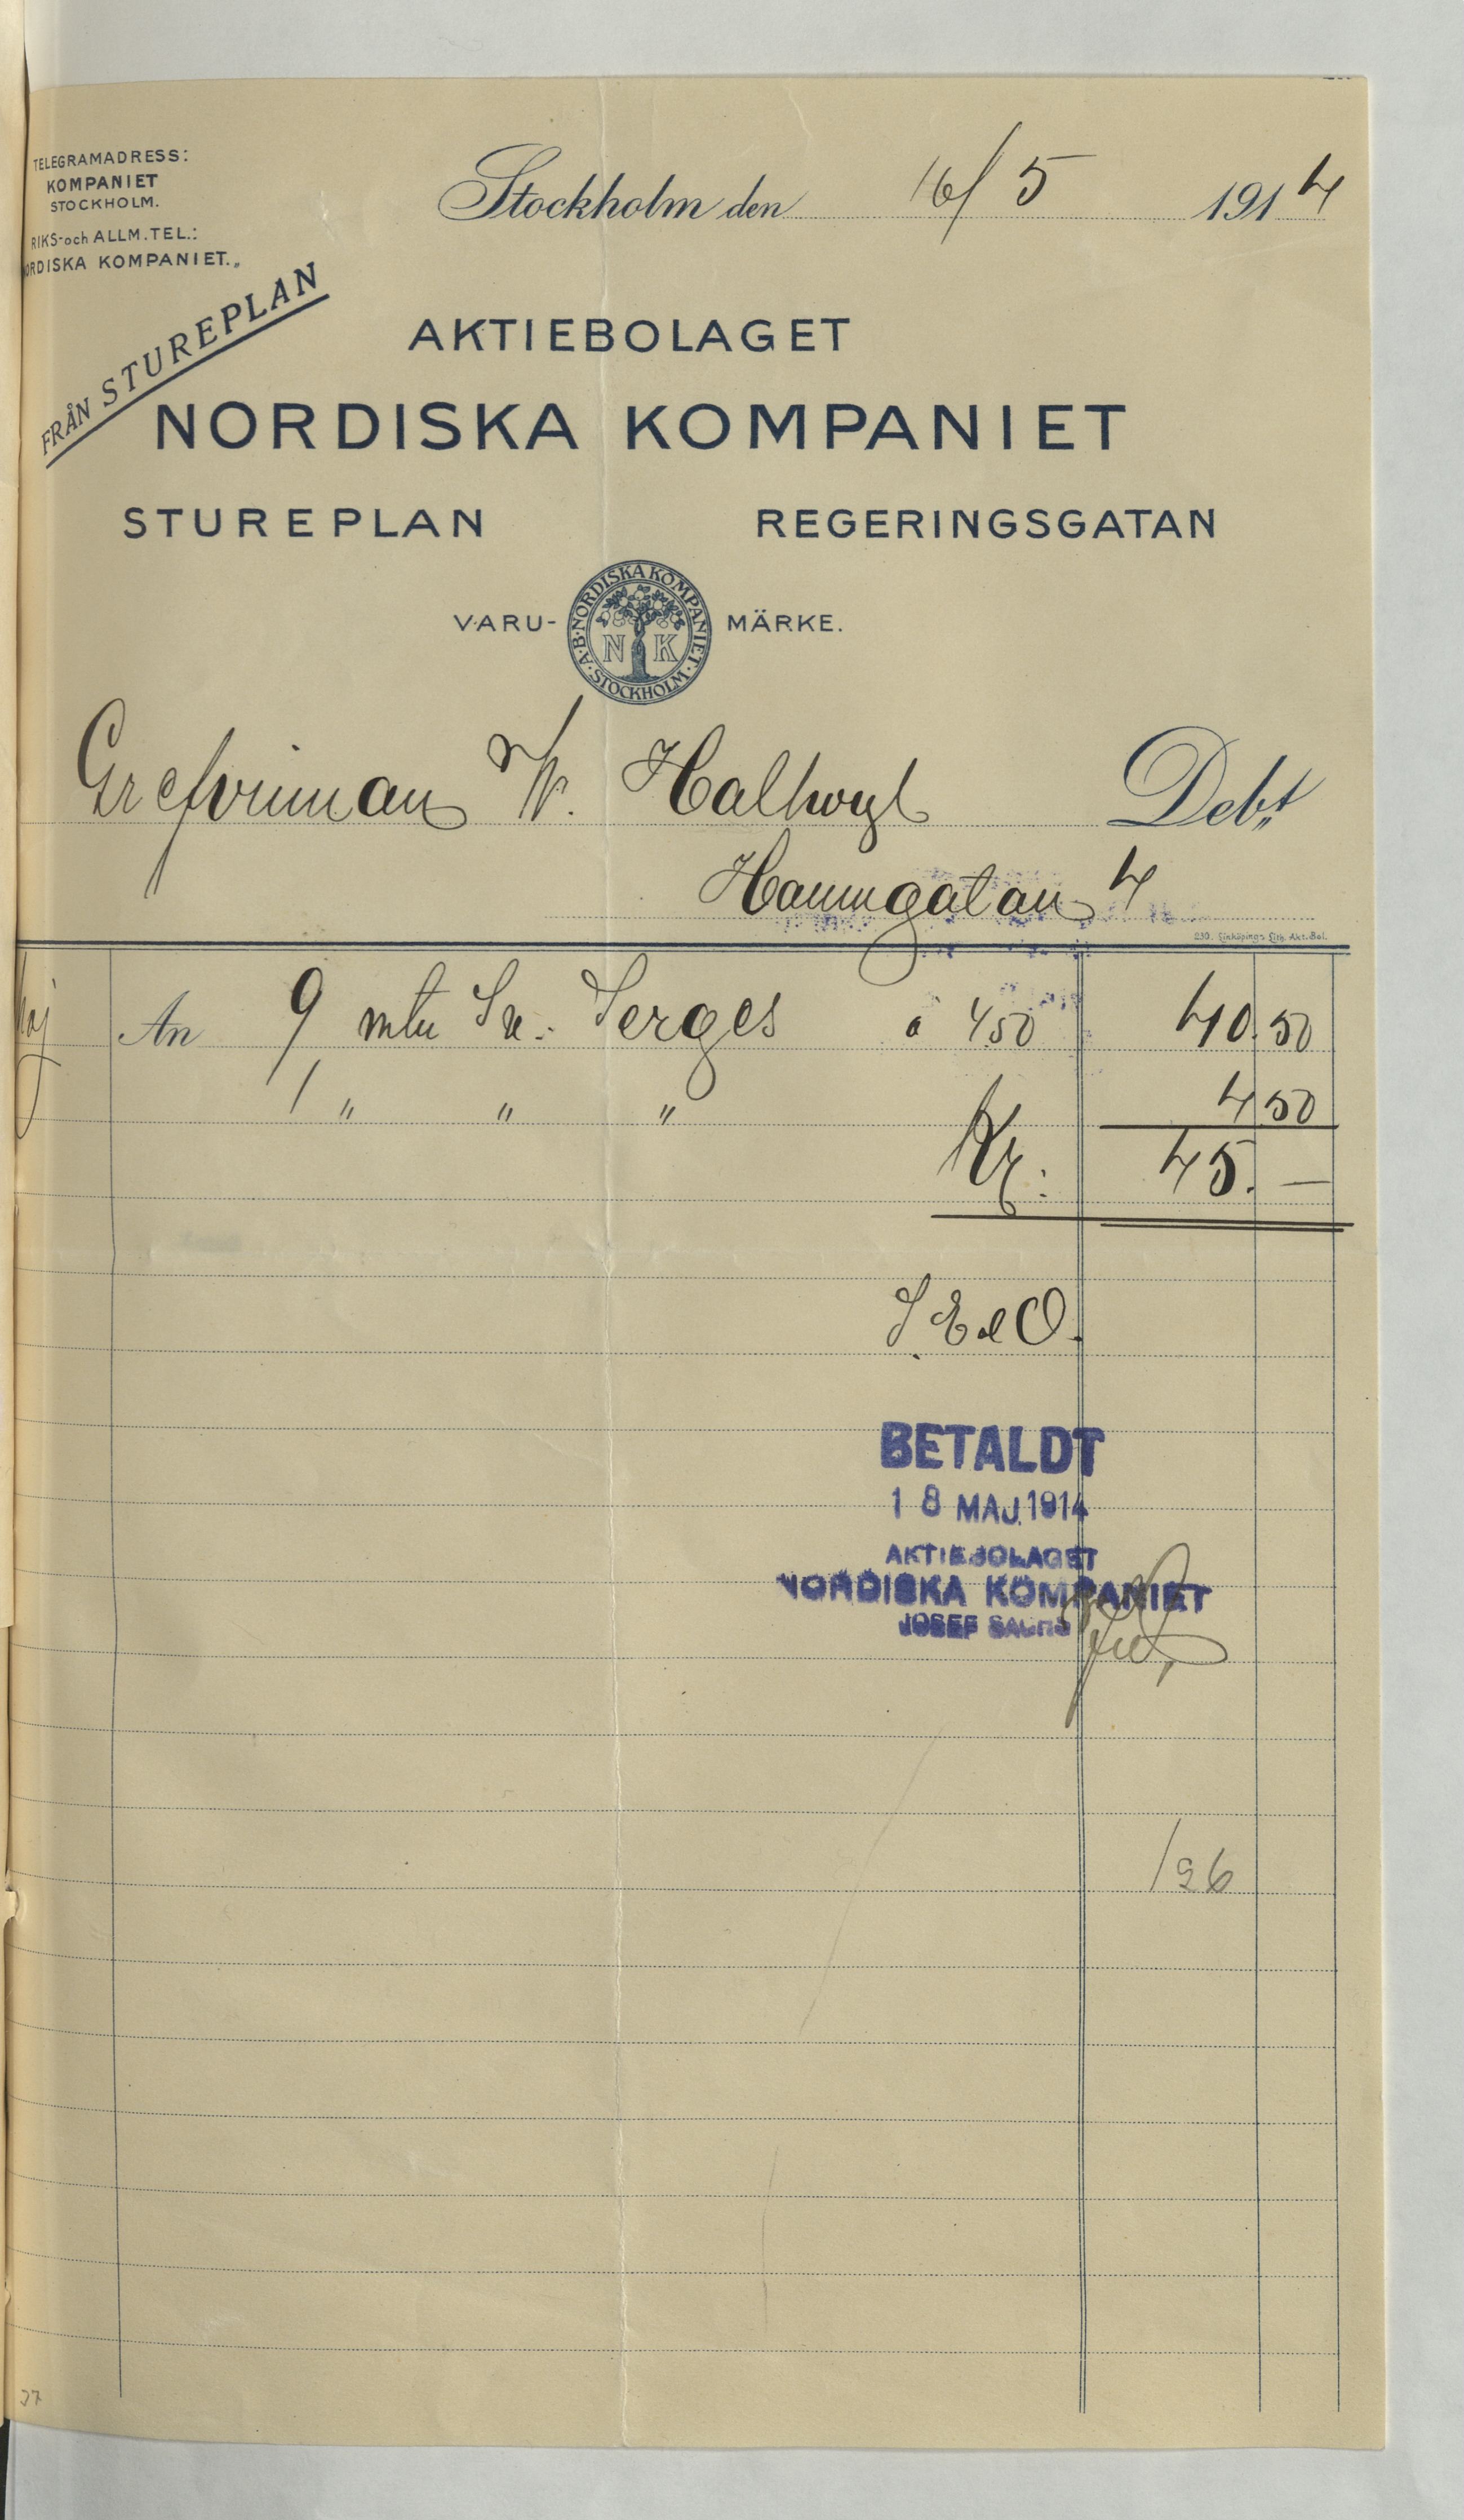 TELEGRAMADRESS:
KOMPANIET
STOCKHOLM.
RIKS- och ALLM. TEL.:
ORDISKA KOMPANIET.„
FRÅN STUREPLAN
Stockholm den 16/5 1914
AKTIEBOLAGET
NORDISKA KOMPANIET
STUREPLAN REGERINGSGATAN
VARU- MÄRKE.
A.B. NORDISKA KOMPANIET. STOCKHOLM
N K
Grefvinnan W. Hallwyl Deb:t
Hamngatan 4
230. Linköpings Lith. Akt. Bol.
Maj An 9 mtr Sv. Serges à 4.50 40.50
1 " " " 4.50
Kr: 45. —
S. E & O.
BETALDT
18 MAJ 1914
AKTIEBOLAGET
NORDISKA KOMPANIET
JOSEF SACHS
126